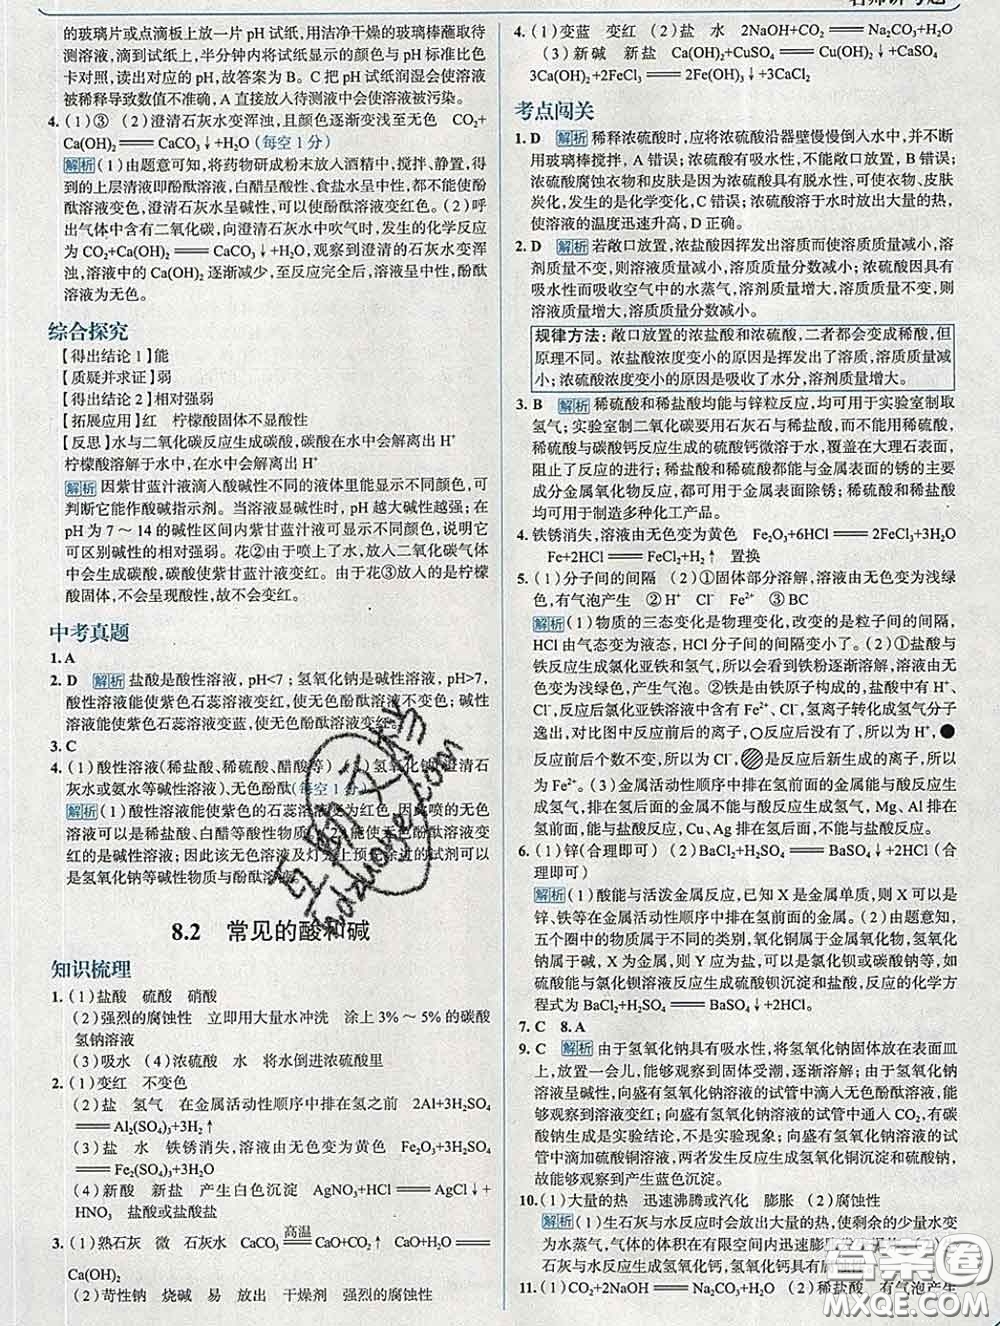 的玻璃片或点滴板上放一片 pH 试纸,用洁净干燥的玻璃棒蘸取待
测溶液,滴到试纸上,半分钟内将试纸显示的颜色与 pH 标准比色
卡对照,读出对应的 pH,故答案为 B。C 把 pH 试纸润湿会使溶液
被稀释导致数值不准确,A 直接放入待测液中会使溶液被污染。
4. (1)③ (2)澄清石灰水变浑浊,且颜色逐渐变浅至无色 CO₂+
Ca(OH)₂══CaCO₃↓+H₂O(每空1分)
解析 (1)由题意可知,将药物研成粉末放入酒精中,搅拌、静置,得
到的上层清液即酚酞溶液,白醋呈酸性、食盐水呈中性,都不能使酚
酞溶液变色,澄清石灰水呈碱性,可以使酚酞溶液变红色。(2)呼
出气体中含有二氧化碳,向澄清石灰水中吹气时,发生的化学反应
为 CO₂+Ca(OH)₂══CaCO₃↓+H₂O,观察到澄清的石灰水变浑
浊,溶液中的 Ca(OH)₂ 逐渐减少,至反应完全后,溶液呈中性,酚酞
溶液为无色。
综合探究
【得出结论1】能
【质疑并求证】弱
【得出结论2】相对强弱
【拓展应用】红 柠檬酸固体不显酸性
【反思】水与二氧化碳反应生成碳酸,碳酸在水中会解离出 H⁺
柠檬酸溶解于水中,在水中会解离出 H⁺
解析 因紫甘蓝汁液滴入酸碱性不同的液体里能显示不同颜色,可
判断它能作酸碱指示剂。当溶液显碱性时,pH 越大碱性越强;在
pH 为 7~14 的碱性区间内紫甘蓝汁液可显示不同颜色,说明它
可区别碱性的相对强弱。花②由于喷上了水,放入二氧化碳气体
中会生成碳酸,碳酸使紫甘蓝汁液变红。由于花③放入的是柠檬
酸固体,不会呈现酸性,故不会变红。
中考真题
1. A
2. D 解析 盐酸是酸性溶液,pH<7;氢氧化钠是碱性溶液,pH>7,
酸性溶液能使紫色石蕊溶液变红,使无色酚酞溶液不变色;碱性
溶液能使紫色石蕊溶液变蓝,使无色酚酞溶液变红。
3. C
4. (1)酸性溶液(稀盐酸、稀硫酸、醋酸等) (2)氢氧化钠(澄清石
灰水或氨水等碱性溶液)、无色酚酞(每空1分)
解析 (1)酸性溶液能使紫色的石蕊溶液变为红色,因此喷的无色
溶液可以是稀盐酸、白醋等酸性物质。(2)能使无色酚酞溶液变
红的是碱性溶液;因此该无色溶液及灯笼上预先涂过的试剂可以
是氢氧化钠等碱性物质与酚酞溶液。
8.2 常见的酸和碱
知识梳理
1. (1)盐酸 硫酸 硝酸
(2)强烈的腐蚀性 立即用大量水冲洗 涂上3%~5%的碳酸
氢钠溶液
(3)吸水 (4)浓硫酸 水 将水倒进浓硫酸里
2. (1)变红 不变色
(2)盐 氢气 在金属活动性顺序中排在氢之前 2Al+3H₂SO₄
══Al₂(SO₄)₃+3H₂↑
(3)盐 水 铁锈消失,溶液由无色变为黄色 Fe₂O₃+3H₂SO₄
══Fe₂(SO₄)₃+3H₂O
(4)新酸 新盐 产生白色沉淀 AgNO₃+HCl══AgCl↓+
HNO₃ 盐酸或盐酸盐
3. (1)熟石灰 微 石灰水 CaCO₃══(高温)CaO+CO₂↑ CaO+H₂O══
Ca(OH)₂
(2)苛性钠 烧碱 易 放出 干燥剂 强烈的腐蚀性
4. (1)变蓝 变红 (2)盐 水 2NaOH+CO₂══Na₂CO₃+H₂O
(3)新碱 新盐 Ca(OH)₂+CuSO₄══Cu(OH)₂↓+CaSO₄
3Ca(OH)₂+2FeCl₃══2Fe(OH)₃↓+3CaCl₂
考点闯关
1. D 解析 稀释浓硫酸时,应将浓硫酸沿器壁慢慢倒入水中,并不断
用玻璃棒搅拌,A 错误;浓硫酸有吸水性,不能敞口放置,B 错误;浓
硫酸腐蚀衣物和皮肤是因为浓硫酸具有脱水性,可使衣物、皮肤
炭化,发生的是化学变化,C 错误;浓硫酸溶于水时放出大量的热,
使溶液的温度迅速升高,D 正确。
2. D 解析 若敞口放置,浓盐酸因挥发出溶质而使溶质质量减小,溶
剂质量不变,则溶液质量减小,溶质质量分数减小。浓硫酸因具有
吸水性而吸收空气中的水蒸气,溶剂质量增大,溶质质量不变,则
溶液质量增大,溶质质量分数减小。
规律方法:敞口放置的浓盐酸和浓硫酸,二者都会变成稀酸,但
原理不同。浓盐酸浓度变小的原因是挥发出了溶质,溶质质量减
小;浓硫酸浓度变小的原因是吸收了水分,溶剂质量增大。
3. B 解析 稀硫酸和稀盐酸均能与锌粒反应,均可用于实验室制取
氢气;实验室制二氧化碳要用石灰石与稀盐酸,而不能用稀硫酸,
稀硫酸与碳酸钙反应生成的硫酸钙微溶于水,覆盖在大理石表面,
阻止了反应的进行;稀盐酸和稀硫酸都能与金属表面的锈的主要
成分金属氧化物反应,都可用于金属表面除锈;稀硫酸和稀盐酸
均可用于制造多种化工产品。
4. 铁锈消失,溶液由无色变为黄色 Fe₂O₃+6HCl══2FeCl₃+3H₂O
Fe+2HCl══FeCl₂+H₂↑ 置换
5. (1)分子间的间隔 (2)①固体部分溶解,溶液由无色变为浅绿
色,有气泡产生 ②H⁺ Cl⁻ Fe²⁺ ③BC
解析 (1)物质的三态变化是物理变化,改变的是粒子间的间隔,
HCl 由气态变为液态,HCl 分子间的间隔变小了。(2)①盐酸与
铁反应生成氯化亚铁和氢气,所以会看到铁粉逐渐溶解,溶液由无
色变为浅绿色,产生气泡。②铁是由铁原子构成的,盐酸中有 H⁺、
Cl⁻,反应后氯化亚铁溶液中含有 Fe²⁺、Cl⁻,氢离子转化成氢气分子
逸出,对比图中反应前后的离子,○反应后没有了,所以为 H⁺,●
反应前后个数不变,所以为 Cl⁻,是反应后新生成的离子,所以
为 Fe²⁺。(3)金属活动性顺序中排在氢前面的金属能与酸反应生
成氢气,排在氢后面的金属不能与酸反应生成氢气,Mg、Al 排在
氢前面,能与盐酸反应,Cu、Ag 排在氢后面,不能与盐酸反应。
6. (1)锌(合理即可) (2)BaCl₂+H₂SO₄══BaSO₄↓+2HCl(合
理即可)
解析 (1)酸能与活泼金属反应,已知 X 是金属单质,则 X 可以是
锌、铁等在金属活动性顺序中排在氢前面的金属。(2)由题意知,
五个圈中的物质属于不同的类别,氧化铜属于金属氧化物,氢氧化
钠属于碱,则 Y 应为盐,可以是氯化钡或碳酸钠或硝酸钡等物质,
如硫酸能与氯化钡溶液反应生成硫酸钡沉淀和盐酸,反应的化学方
程式为 BaCl₂+H₂SO₄══BaSO₄↓+2HCl。
7. C 8. A
9. C 解析 由于氢氧化钠具有吸水性,将氢氧化钠固体放在表面皿
上,放置一会儿,能够观察到固体受潮,逐渐溶解;由于氢氧化钠
溶液呈碱性,向盛有氢氧化钠溶液的试管中滴入无色酚酞溶液,能
够观察到溶液变红;向盛有氢氧化钠溶液的试管中通入 CO₂,有碳
酸钠生成是实验结论,不是实验现象;向盛有氢氧化钠溶液的试
管中滴加硫酸铜溶液,两者发生反应生成氢氧化铜沉淀和硫酸钠,
故能够观察到产生蓝色沉淀。
10. (1)大量的热 迅速沸腾或汽化 膨胀 (2)腐蚀性
解析 (1)生石灰与水反应时会放出大量的热,使剩余的少量水变
为水蒸气,气体的体积在有限空间内迅速膨胀
石灰与水反应生成氢氧化钙,氢氧化钙具有
11. (1)CO₂+2NaOH══Na₂CO₃+H₂O (2)稀盐酸 有气泡产生
答案圈
MXQE.COM